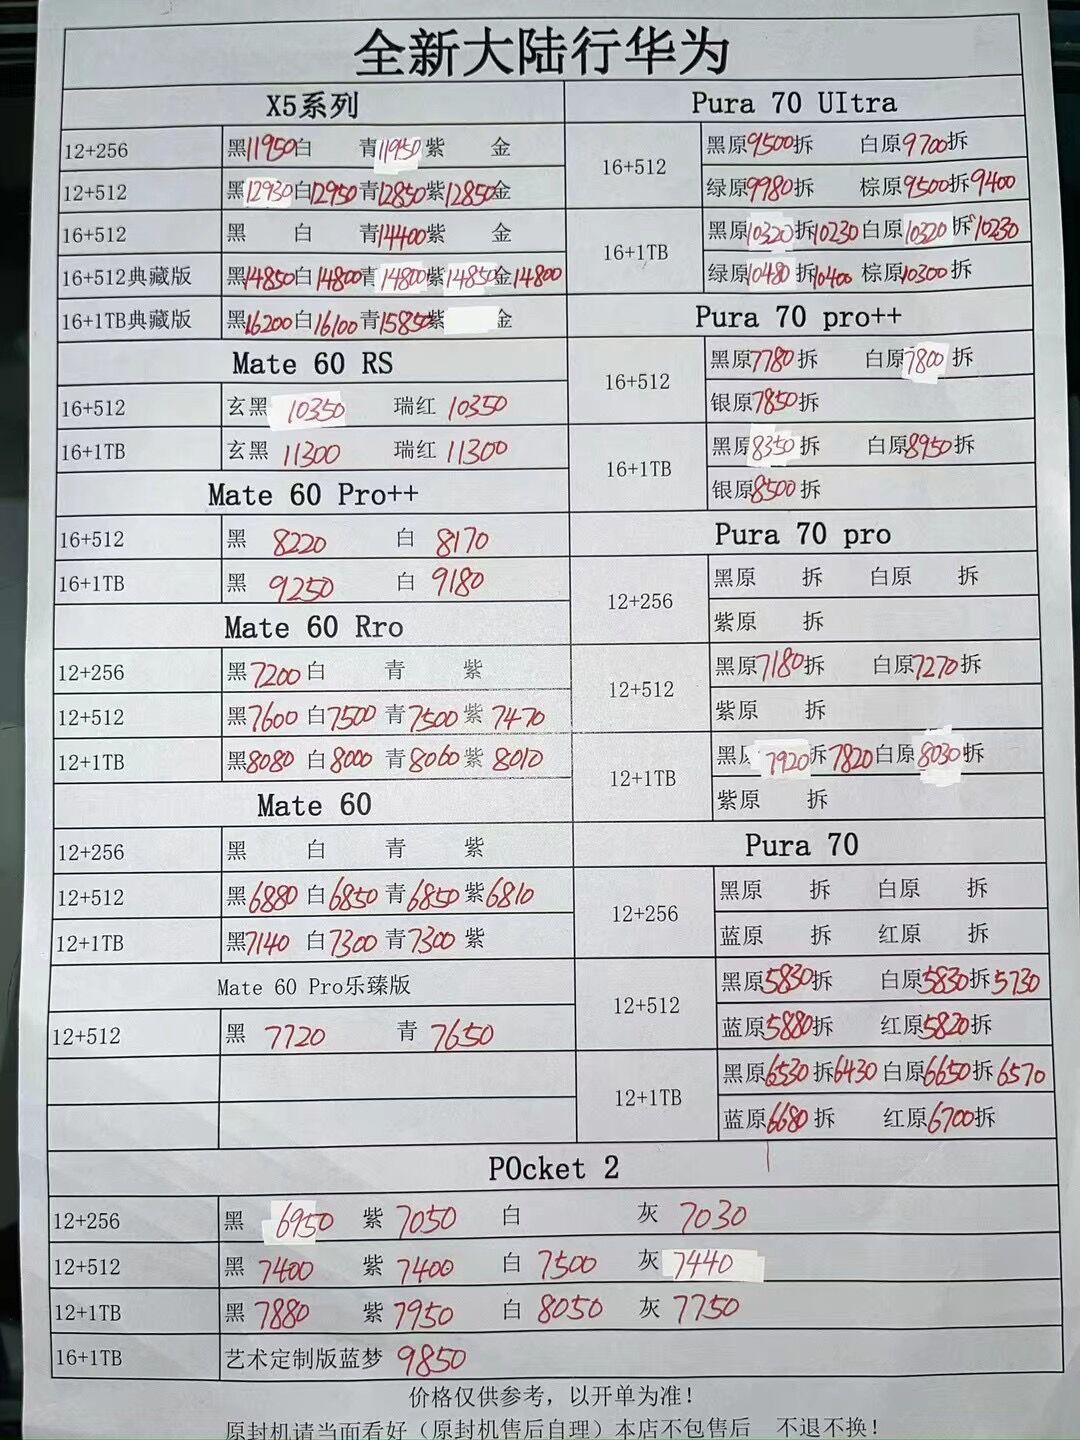 全新大陆行华为
X5系列
12+256 黑11950白 青11950紫 金
12+512 黑12930白12950青12850紫12850金
16+512 黑 白 青14400紫 金
16+512典藏版 黑14850白14800青14800紫14850金14800
16+1TB典藏版 黑16200白16100青15850紫 金
Mate 60 RS
16+512 玄黑 10350 瑞红 10350
16+1TB 玄黑 11300 瑞红 11300
Mate 60 Pro++
16+512 黑 8220 白 8170
16+1TB 黑 9250 白 9180
Mate 60 Rro
12+256 黑7200白 青 紫
12+512 黑7600 白7500 青7500 紫 7470
12+1TB 黑8080 白8000 青8060 紫 8010
Mate 60
12+256 黑 白 青 紫
12+512 黑6880 白6850 青6850 紫6810
12+1TB 黑7140 白7300 青7300 紫
Mate 60 Pro乐臻版
12+512 黑 7720 青 7650
Pura 70 UItra
16+512 黑原9500拆 白原9700拆
绿原9980拆 棕原9500拆9400
16+1TB 黑原10320拆10230 白原10320拆10230
绿原10480拆10400 棕原10300拆
Pura 70 pro++
16+512 黑原7780拆 白原7800拆
银原7850拆
16+1TB 黑原8350拆 白原8950拆
银原8500拆
Pura 70 pro
12+256 黑原 拆 白原 拆
紫原 拆
12+512 黑原7180拆 白原7270拆
紫原 拆
12+1TB 黑原7920拆7820白原8030拆
紫原 拆
Pura 70
12+256 黑原 拆 白原 拆
蓝原 拆 红原 拆
12+512 黑原5830拆 白原5830拆5730
蓝原5880拆 红原5820拆
12+1TB 黑原6530拆6430 白原6650拆6570
蓝原6680拆 红原6700拆
POcket 2
12+256 黑 6950 紫 7050 白 灰 7030
12+512 黑 7400 紫 7400 白 7500 灰 7440
12+1TB 黑 7880 紫 7950 白 8050 灰 7750
16+1TB 艺术定制版蓝梦 9850
价格仅供参考，以开单为准！
原封机请当面看好（原封机售后自理）本店不包售后 不退不换！